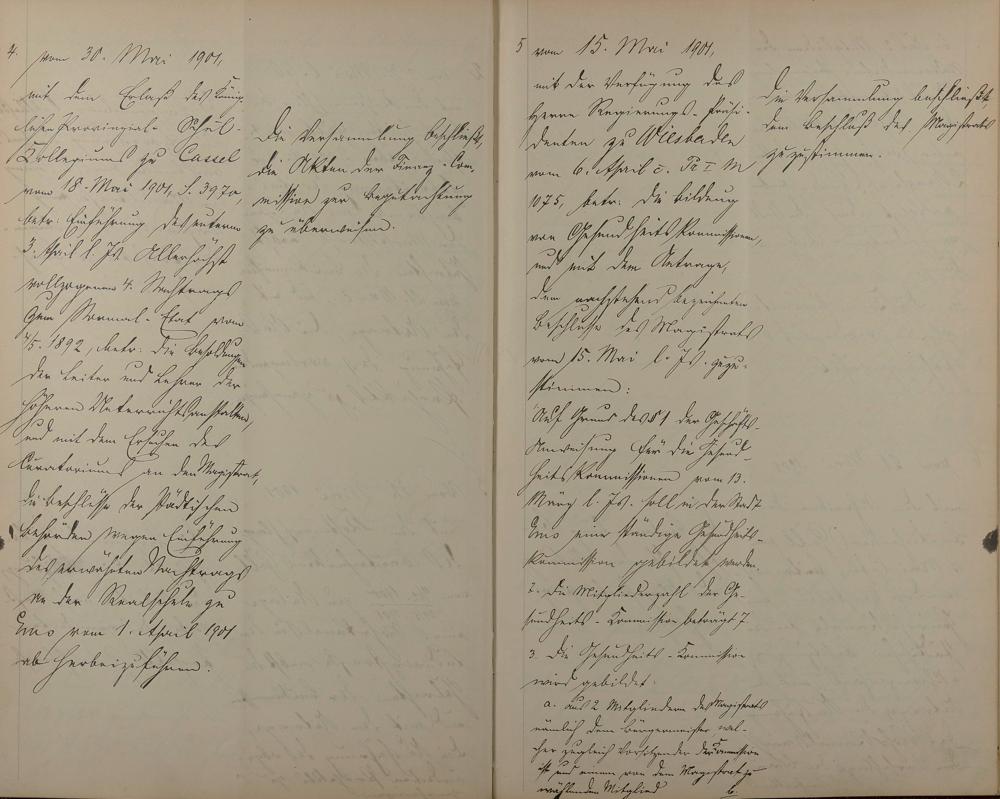 4. vom 30. Mai 1901,
mit dem Erlaß des König-
lichen Provinzial-Schul-
Collegiums zu Cassel
vom 18. Mai 1901, S. 3970,
betr. Einführung des unterm
3. April l. Js. Allerhöchst
vollzogenen 4. Nachtrags
zum Normal-Etat vom
4/5. 1892, betr. die Besoldungen
der Leiter und Lehrer der
höheren Unterrichtsanstalten,
und mit dem Ersuchen des
Curatoriums an den Magistrat,
die Beschlüsse der städtischen
Behörden wegen Einführung
des erwähnten Nachtrags
an der Realschule zu
Ems vom 1. April 1901
ab herbeizuführen.
Die Versammlung beschließt,
die Akten der Finanz-Com-
mission zur Begutachtung
zu überweisen.
5 vom 15. Mai 1901,
mit der Verfügung des
Herrn Regierungs-Präsi-
denten zu Wiesbaden
vom 6. April c. Pr I M
1075, betr. die Bildung
von Gesundheitskommissionen,
und mit dem Antrage,
dem nachstehend bezeichneten
Beschlusse des Magistrats
vom 15. Mai l. Js. zuzu-
stimmen:
Auf Grund des § 1 der Geschäfts-
Anweisung für die Gesund-
heitskommissionen vom 13.
März l. Js. soll in der Stadt
Ems eine ständige Gesundheits-
kommission gebildet werden.
2. Die Mitgliederzahl der Ge-
sundheits-Commission beträgt 7.
3. Die Gesundheits-Commission
wird gebildet:
a. aus 2 Mitgliedern des Magistrats
nämlich dem Bürgermeister, wel-
cher zugleich Vorsitzender der Commission
ist und einem von dem Magistrat zu
wählenden Mitglied
b.
Die Versammlung beschließt,
dem Beschluß des Magistrats
zuzustimmen.